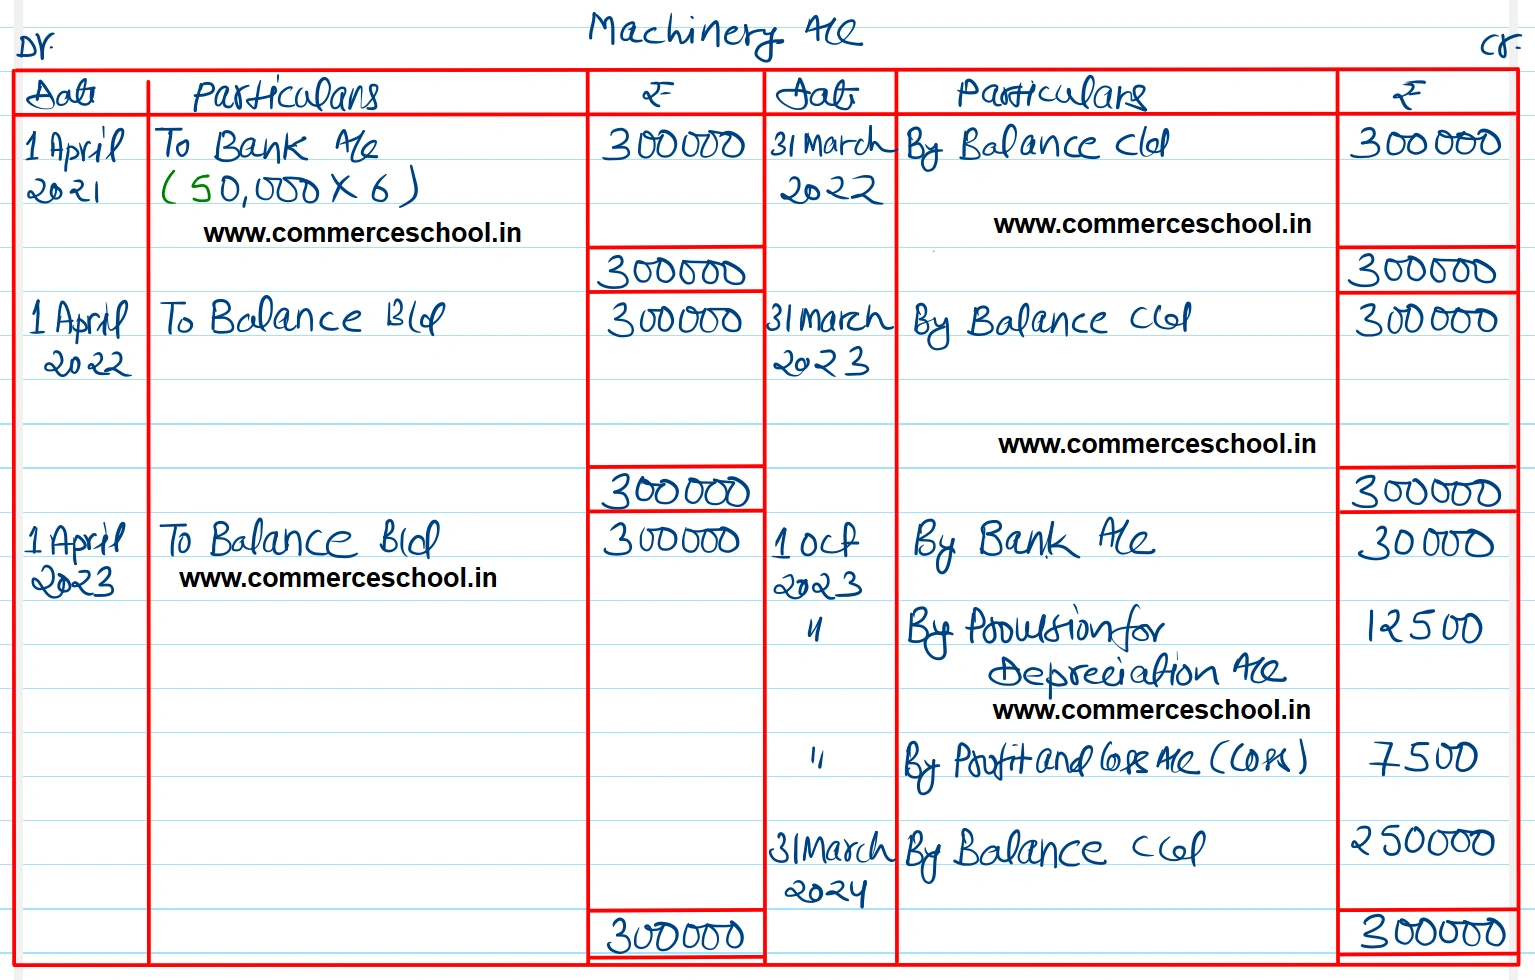 Machinery A/c
Dr. Cr.
Date Particulars ₹ Date Particulars ₹
1 April To Bank A/c 300000 31 March By Balance c/d 300000
2021 (50,000 X 6) 2022
www.commerceschool.in www.commerceschool.in
300000 300000
1 April To Balance B/d 300000 31 March By Balance c/d 300000
2022 2023
www.commerceschool.in
300000 300000
1 April To Balance B/d 300000 1 Oct By Bank A/c 30000
2023 www.commerceschool.in 2023
" By Provision for 12500
Depreciation A/c
www.commerceschool.in
" By Profit and Loss A/c (Loss) 7500
31 March By Balance c/d 250000
2024
300000 300000